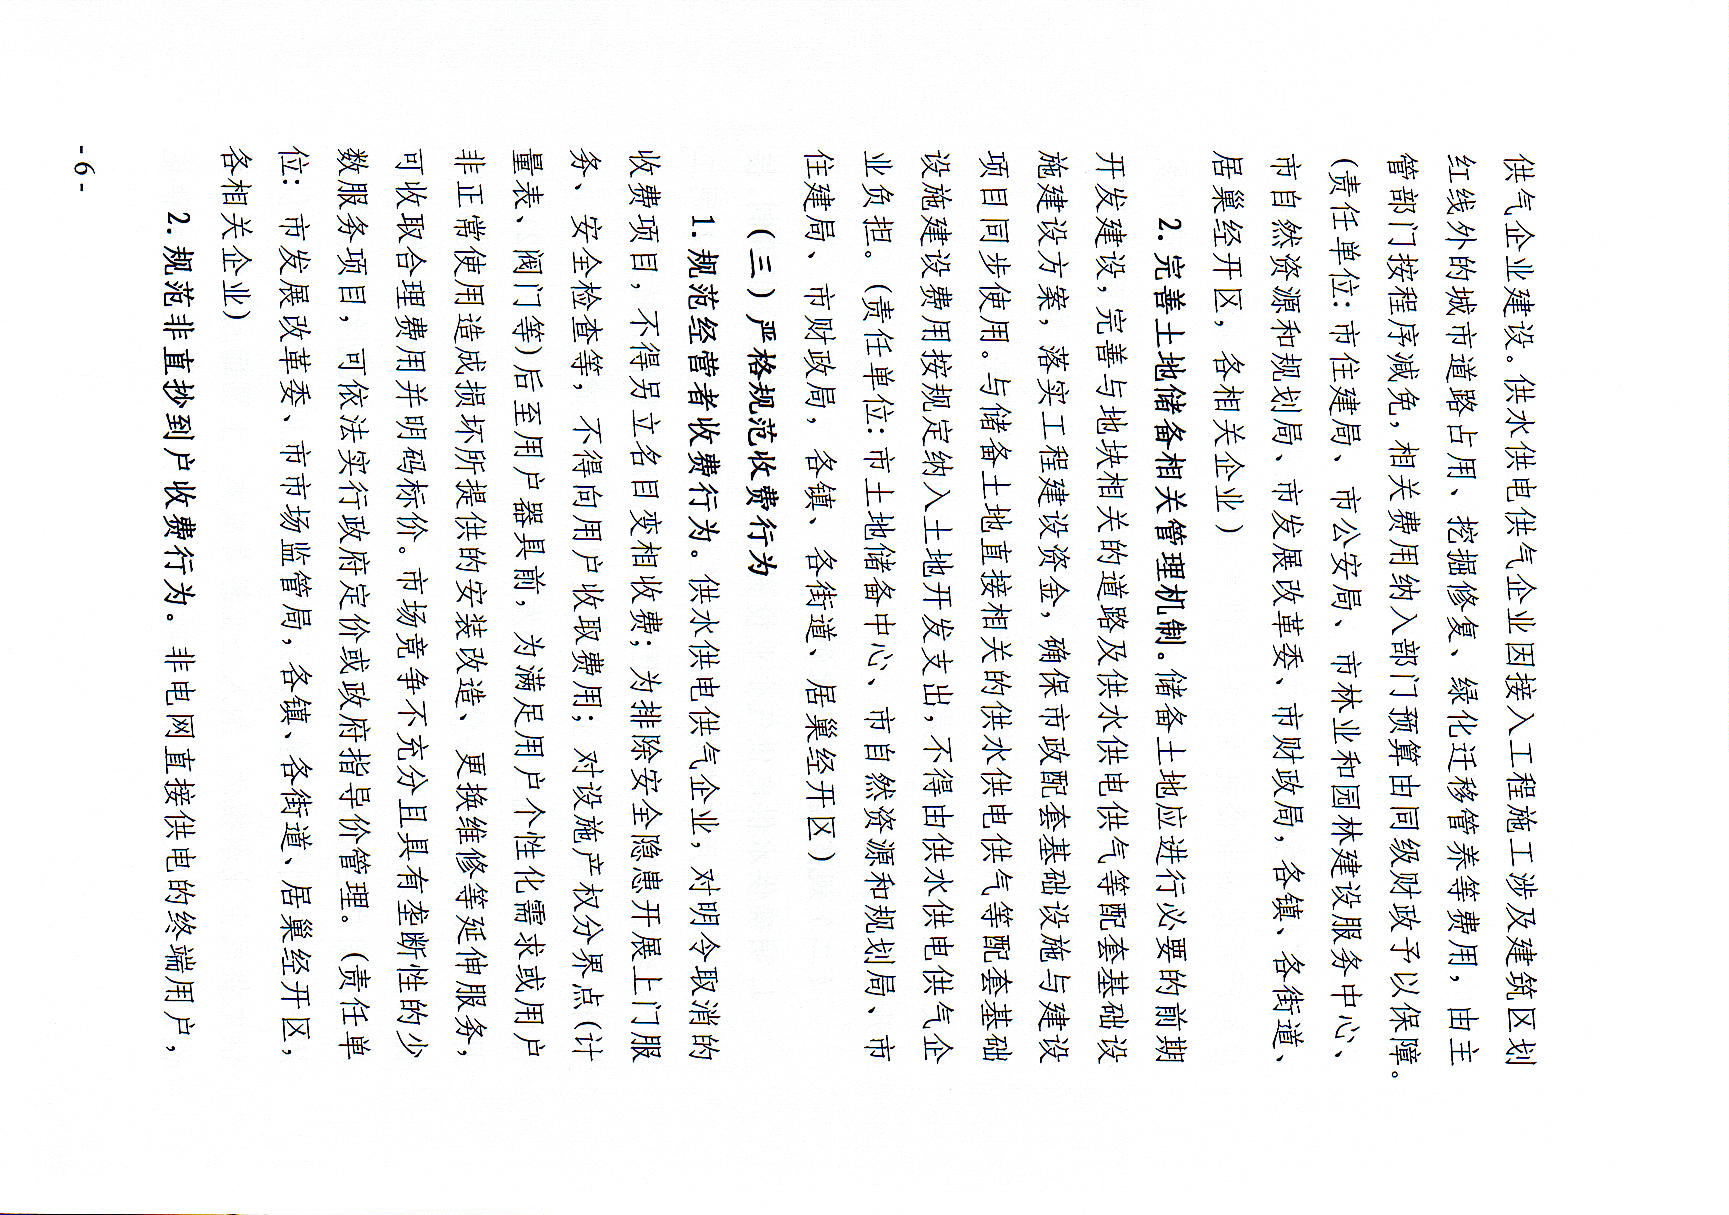 供气企业建设。供水供电供气企业因接入工程施工涉及建筑区划
红线外的城市道路占用、挖掘修复、绿化迁移管养等费用，由主
管部门按程序减免，相关费用纳入部门预算由同级财政予以保障。
（责任单位：市住建局、市公安局、市林业和园林建设服务中心、
市自然资源和规划局、市发展改革委、市财政局，各镇、各街道、
居巢经开区，各相关企业）
2. 完善土地储备相关管理机制。储备土地应进行必要的前期
开发建设，完善与地块相关的道路及供水供电供气等配套基础设
施建设方案，落实工程建设资金，确保市政配套基础设施与建设
项目同步使用。与储备土地直接相关的供水供电供气等配套基础
设施建设费用按规定纳入土地开发支出，不得由供水供电供气企
业负担。（责任单位：市土地储备中心、市自然资源和规划局、市
住建局、市财政局，各镇、各街道、居巢经开区）
（三）严格规范收费行为
1. 规范经营者收费行为。供水供电供气企业，对明令取消的
收费项目，不得另立名目变相收费；为排除安全隐患开展上门服
务、安全检查等，不得向用户收取费用；对设施产权分界点（计
量表、阀门等）后至用户器具前，为满足用户个性化需求或用户
非正常使用造成损坏所提供的安装改造、更换维修等延伸服务，
可收取合理费用并明码标价。市场竞争不充分且具有垄断性的少
数服务项目，可依法实行政府定价或政府指导价管理。（责任单
位：市发展改革委、市市场监管局，各镇、各街道、居巢经开区，
各相关企业）
2. 规范非直抄到户收费行为。非电网直接供电的终端用户，
- 6 -